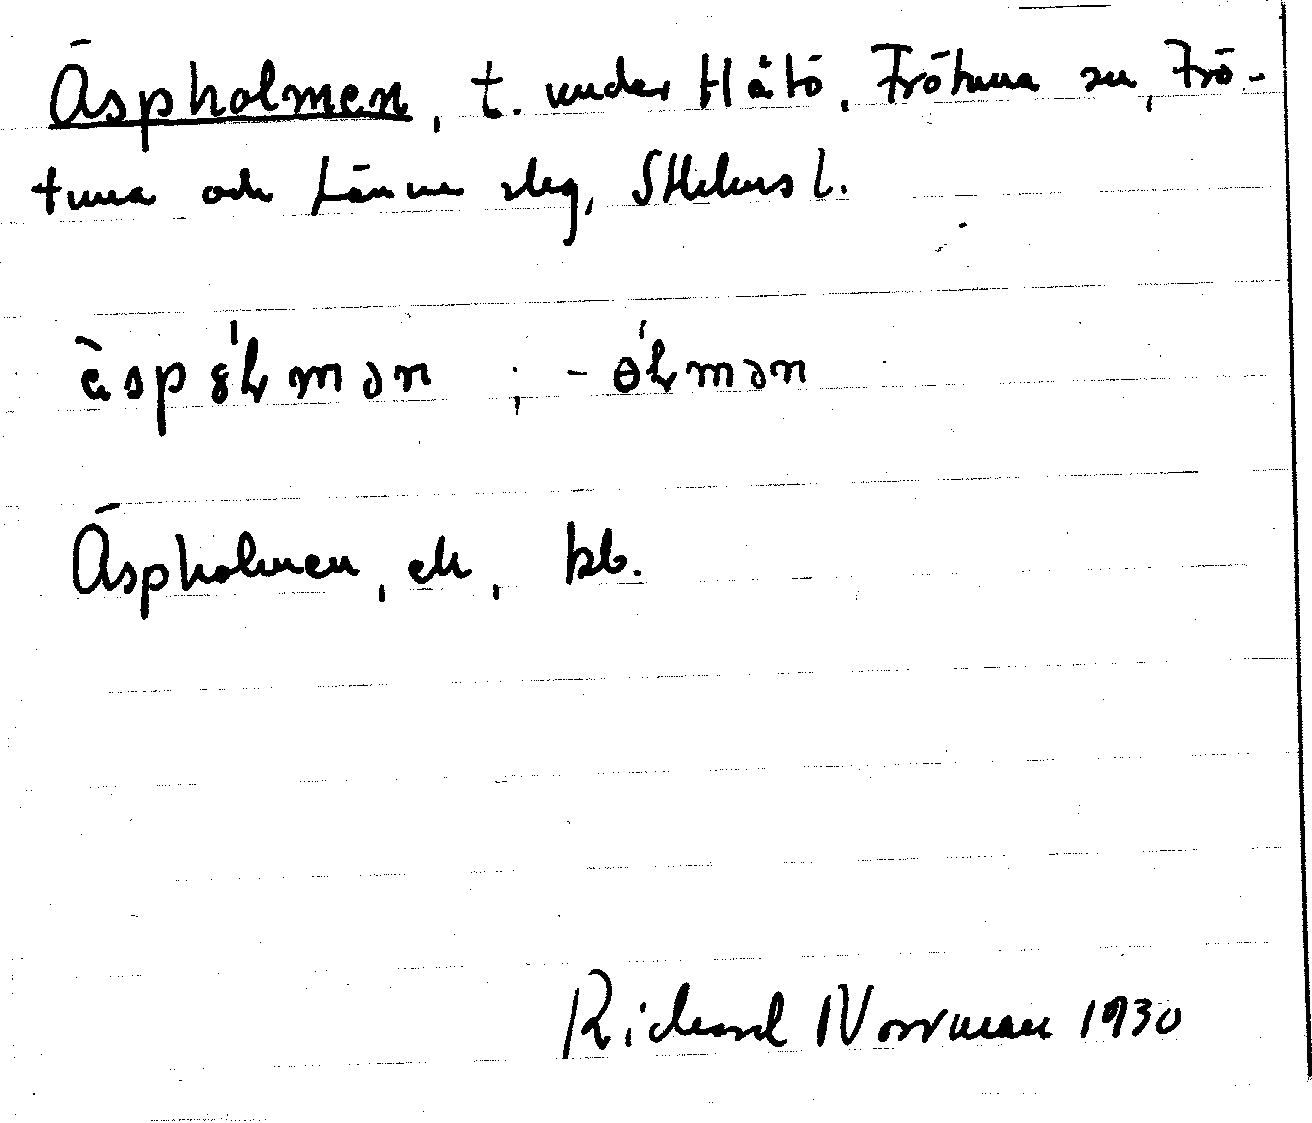 Äspholmen, t. under Håtö, Frötuna sn, Frö-
tuna och Länna slg, Sthlms l.
äspǫ́lmən ; - ɵ́lmən
Äspholmen, ek, kb.
Richard Norrman 1930